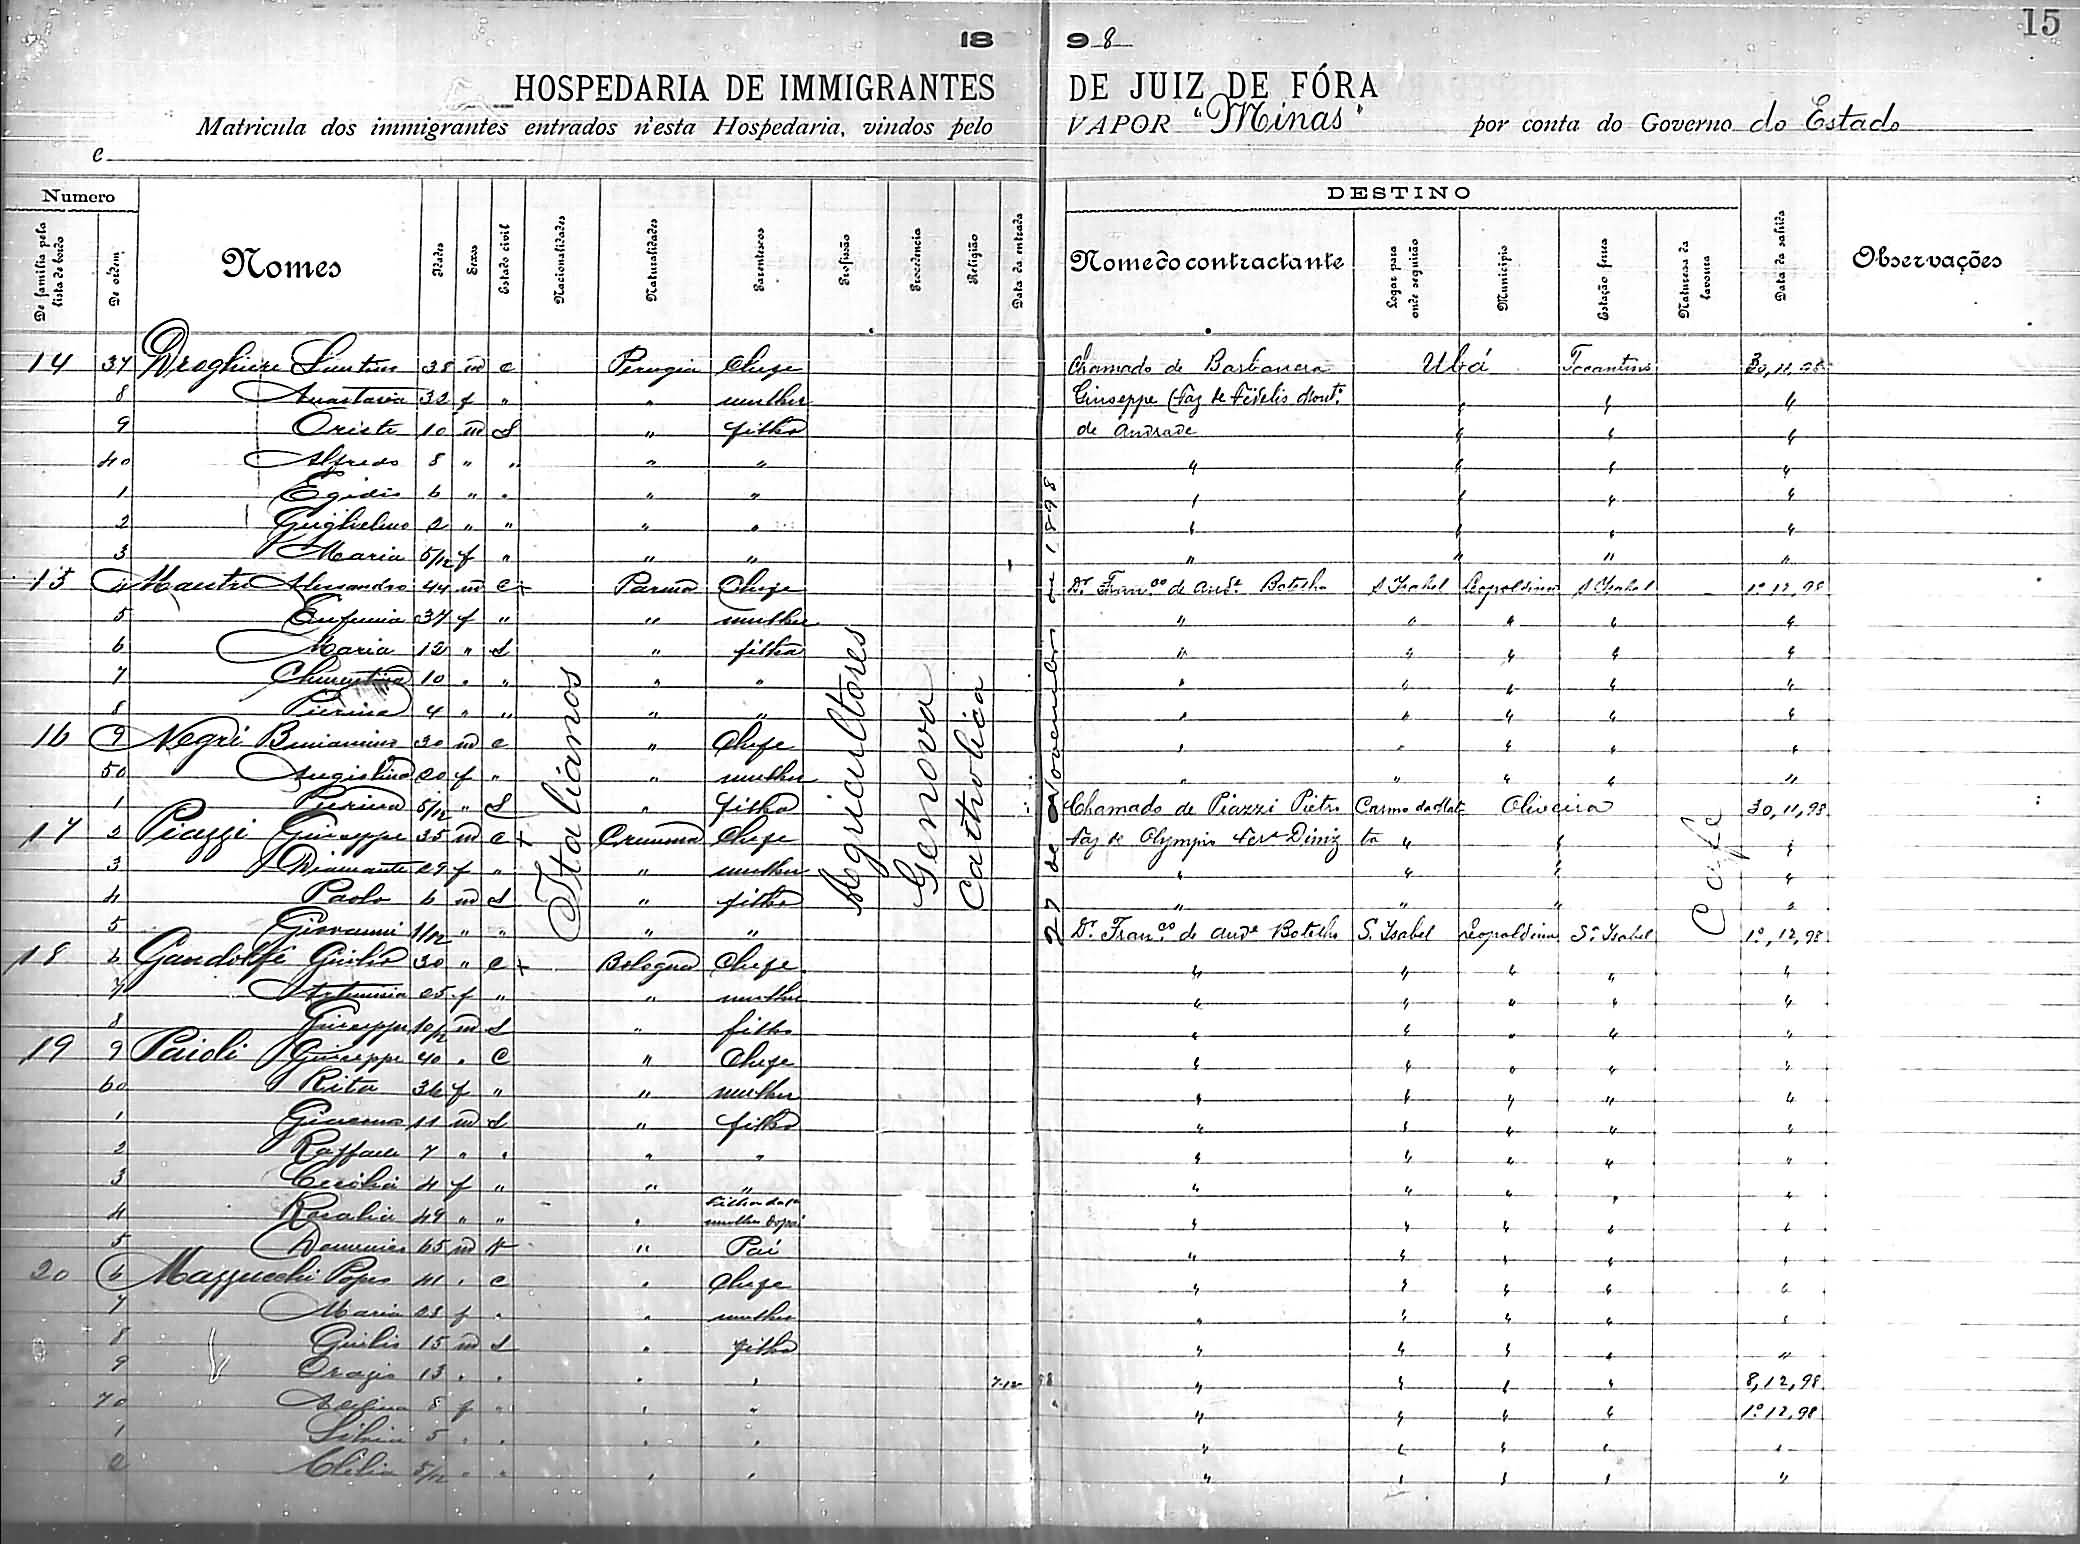 15
18 98
HOSPEDARIA DE IMMIGRANTES DE JUIZ DE FÓRA
Matricula dos immigrantes entrados n'esta Hospedaria, vindos pelo VAPOR "Minas" por conta do Governo do Estado
e
Numero DESTINO
De familia pela lista de bordo De ordem Nomes Idades Sexos Estado civil Nacionalidades Naturalidades Parentescos Profissão Procedencia Religião Data da entrada Nome do contractante Logar para onde seguirão Municipio Estação ferrea Natureza da lavoura Data da sahida Observações
Italianos Agricultores Genova Catholica 27 de Novembro de 1898 Café
14 37 38 m c Perugia Chefe Chamado de Barbanera Ubá Tocantins 30,11,98
8 Anastasia 32 f " " mulher Giuseppe (Faz de Fidelis Mont.º " " "
9 Oreste 10 m S " filho de Andrade " " "
40 Alfredo 8 " " " " " " " "
1 Egidio 6 " " " " " " " "
2 Guglielmo 2 " " " " " " " "
3 Maria 5/12 f " " " " " " "
15 4 Alessandro 44 m c + Parma Chefe Dr. Fran.co de And.e Botelho S Isabel Leopoldina S Isabel 1º,12,98
5 Eufemia 37 f " " mulher " " " " "
6 Maria 12 " S " filha " " " " "
7 10 " " " " " " " " "
8 Pierina 4 " " " " " " " " "
16 9 Negri Beniamino 30 m c " Chefe " " " " "
50 20 f " " mulher " " " " "
1 Pierina 5/12 " S " filha Chamado de Piazzi Pietro Carmo da Mat- Oliveira 30,11,98
17 2 Piazzi Giuseppe 35 m c + Cremona Chefe Faz de Olympio Ferr.a Diniz ta " " "
3 Diamante 29 f " " mulher " " " "
4 Paolo 6 m S " filho " " " "
5 Giovanni 1/12 " " " " Dr. Fran.co de And.e Botelho S. Isabel Leopoldina S.ª Isabel 1º,12,98
18 6 Gandolfi Giulio 30 " c + Bologna Chefe " " " " "
7 Artemisia 25 f " " mulher " " " " "
8 Giuseppe 10/12 m S " filho " " " " "
19 9 Paioli Giuseppe 40 " c " Chefe " " " " "
60 Rita 36 f " " mulher " " " " "
1 Giacomo 11 m S " filho " " " " "
2 Raffaele 7 " " " " " " " " "
3 Cecilia 4 f " " " " " " " "
4 Rosalia 49 " " " mulher do pai " " " " "
5 Domenico 65 m " Pai " " " " "
20 6 Mazzucchi 41 " c " Chefe " " " " "
7 Maria 28 f " " mulher " " " " "
8 Giulio 15 m S " filho " " " " "
9 Orazio 13 " " " " 7-12 98 " " " " 8,12,98
70 8 f " " " " " " " 1º,12,98
1 Silvia 5 " " " " " " " " "
2 Clelia 5/12 " " " " " " " " "